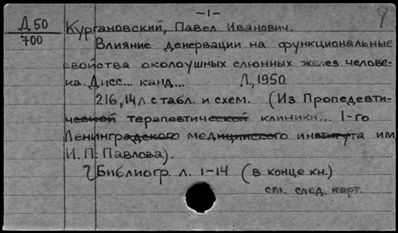 -1-
Д 50
700
Кургановский, Павел Иванович.
Влияние денервации на функциональные
свойства околоушных слюнных желез челове-
ка. Дисс... канд... Л., 1950
216, 14 л. с табл. и схем. (Из Пропедевти-
ческой терапевтической клиники... 1-го
Ленинградского медицинского института им.
И. П. Павлова).
Библиогр. л. 1-14 (в конце кн.)
см. след. карт.